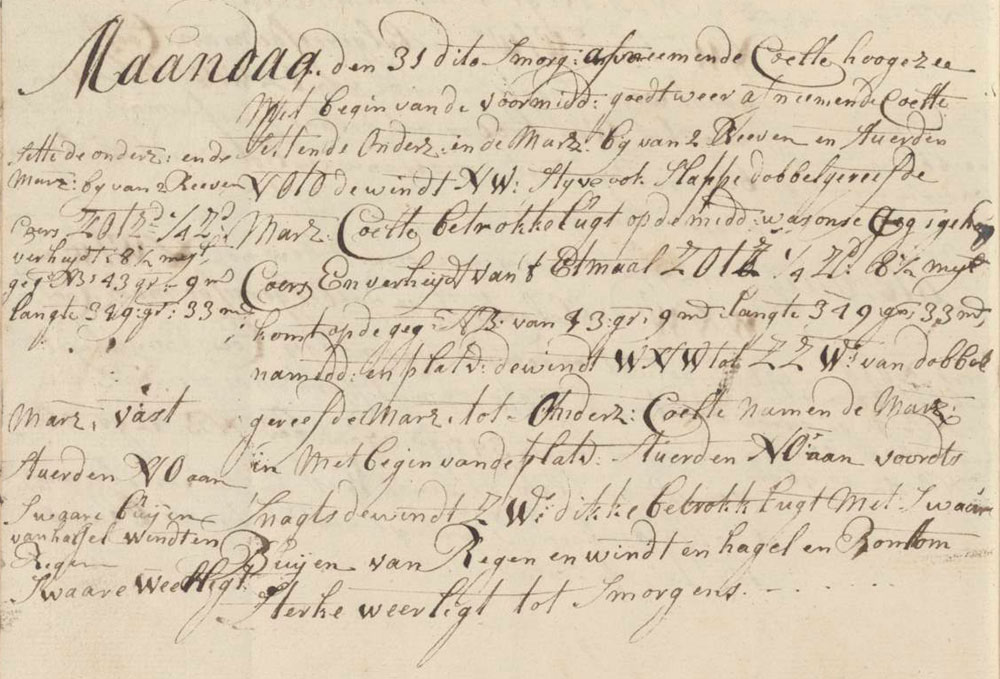 Maandag. den 31 dito Smorg: afneemende Coelte hooge zee
Met begin van de voormidd: goedt weer afneemende Coelte
Settende Onderz: in de Marz: by van 2 Reeven en stuerden
NOtO de windt NW: Styve ook Slappe dobbelgereefde
Marz: Coelte betrokke lugt op de midd: was onse geg: gekop
Coers En verheydt van't Etmaal ZO1Z 1/4 Zd. 8 1/2 myl
komt op de geg: NB: van 43: gr: 9 md: langte 349: gr: 33 md
namidd: en platd: de windt WNW tot ZZWd: van dobbel
gereefde Marz: tot Onderz: Coelte namen de Marz:
in Met begin van de platd: stuerden NO: aan voordts
Snagts de windt ZWd: dikke betrokk lugt Met Swaare
Buyen van Regen en windt en hagel en Rontom
Sterke weerligt tot Smorgens.
sette de onderz: ende
Marz: by van 2 Reeven
Coers ZO1Zd 1/4 Zd
verheydt: 8 1/2 myl
geg NB: 43 gr: 9 md
langte 349: gr: 33 md
Marz: vast
stuerden NO aan
Swaare buyen
van hagel windt en
Regen
Swaare weerligt